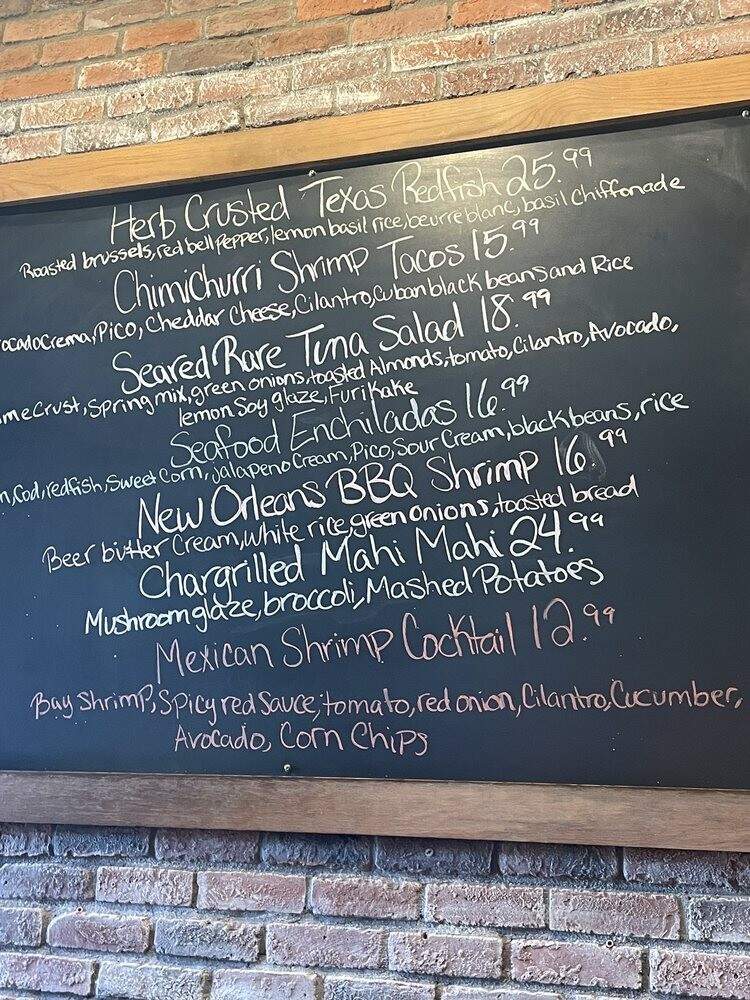 Herb Crusted Texas Redfish 25.99
Roasted brussels, red bell pepper, lemon basil rice, beurre blanc, basil chiffonade
Chimichurri Shrimp Tacos 15.99
Pico, Cheddar Cheese, Cilantro, Cuban black beans and Rice
Seared Rare Tuna Salad 18.99
Crust, Spring mix, green onions, toasted Almonds, tomato, Cilantro, Avocado,
lemon Soy glaze, Furikake
Seafood Enchiladas 16.99
Cod, redfish, Sweet Corn, jalapeno Cream, Pico, Sour Cream, black beans, rice
New Orleans BBQ Shrimp 16.99
Beer butter Cream, white rice, green onions, toasted bread
Chargrilled Mahi Mahi 24.99
Mushroom glaze, broccoli, Mashed Potatoes
Mexican Shrimp Cocktail 12.99
Bay Shrimp, Spicy red Sauce, tomato, red onion, Cilantro, Cucumber,
Avocado, Corn Chips